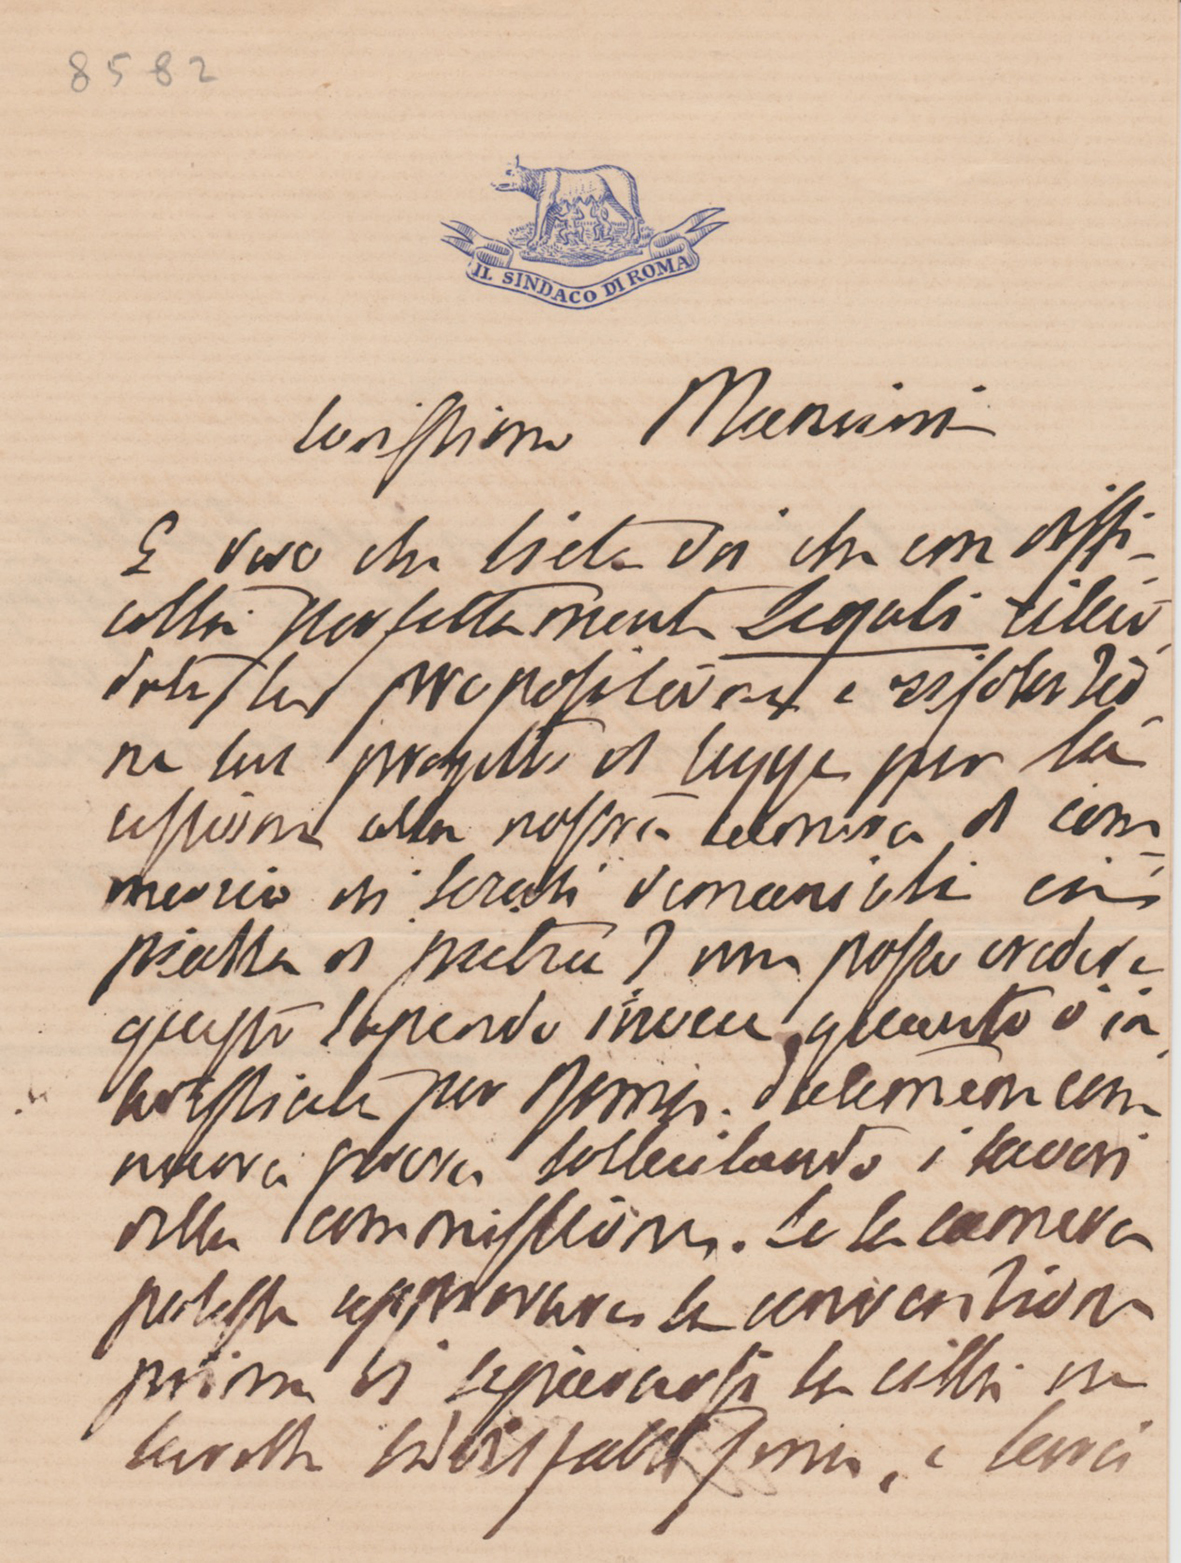 8582
IL SINDACO DI ROMA
Carissimo Mancini
È vero che siete voi che con diffi-
coltà perfettamente legali
proposizione e
ne sul progetto di legge per la
cessione alla nostra camera di com
mercio di locali demaniali in
piazza di pietra? non posso credere
questo sapendo invece quanto v'in
per Roma. datemene con
nuova prova sollecitando i lavori
della commissione. Se la camera
potesse approvare la convenzione
prima di la città ne
sarebbe e sarei